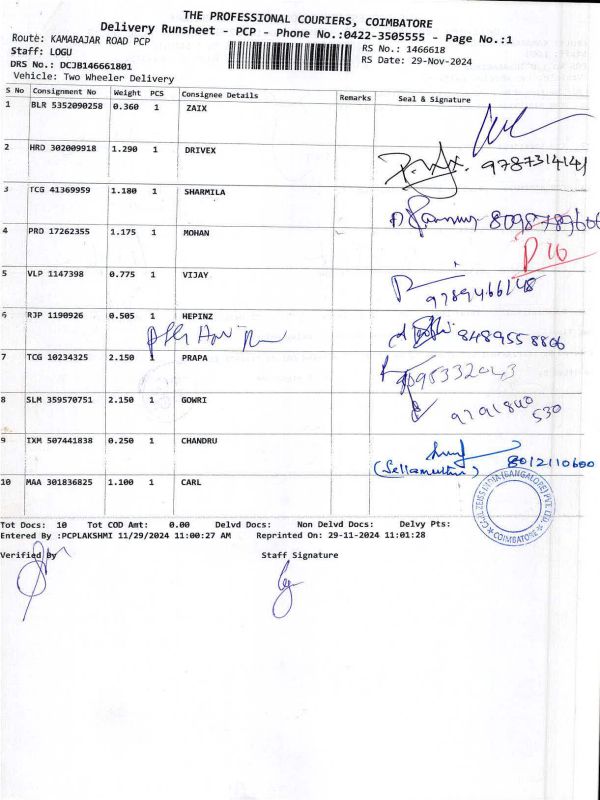 THE PROFESSIONAL COURIERS, COIMBATORE
Delivery Runsheet - PCP - Phone No.:0422-3505555 - Page No.:1
Route: KAMARAJAR ROAD PCP
Staff: LOGU
RS No.: 1466618
DRS No.: DCJB146661801
RS Date: 29-Nov-2024
Vehicle: Two Wheeler Delivery
S No Consignment No Weight PCS Consignee Details Remarks Seal & Signature
1 BLR 5352090258 0.360 1 ZAIX
2 HRD 302009918 1.290 1 DRIVEX 9787314141
3 TCG 41369959 1.180 1 SHARMILA 8098789606
4 PRD 17262355 1.175 1 MOHAN
5 VLP 1147398 0.775 1 VIJAY 9789466148
6 RJP 1190926 0.505 1 HEPINZ 8489558806
7 TCG 10234325 2.150 1 PRAPA 9095332043
8 SLM 359570751 2.150 1 GOWRI 9791840
530
9 IXM 507441838 0.250 1 CHANDRU
(Sellamuthu) 8012110600
10 MAA 301836825 1.100 1 CARL
CARL ZEISS INDIA (BANGALORE) PVT. LTD. * COIMBATORE *
Tot Docs: 10 Tot COD Amt: 0.00 Delvd Docs: Non Delvd Docs: Delvy Pts:
Entered By :PCPLAKSHMI 11/29/2024 11:00:27 AM Reprinted On: 29-11-2024 11:01:28
Verified By Staff Signature